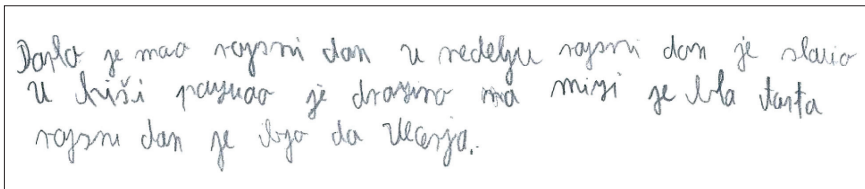 Darko je mao rojsni dan u nedelju rojsni dan je slavio
u hiši pozvao je družino na mizi je bla tarta
rojsni dan je bjo da